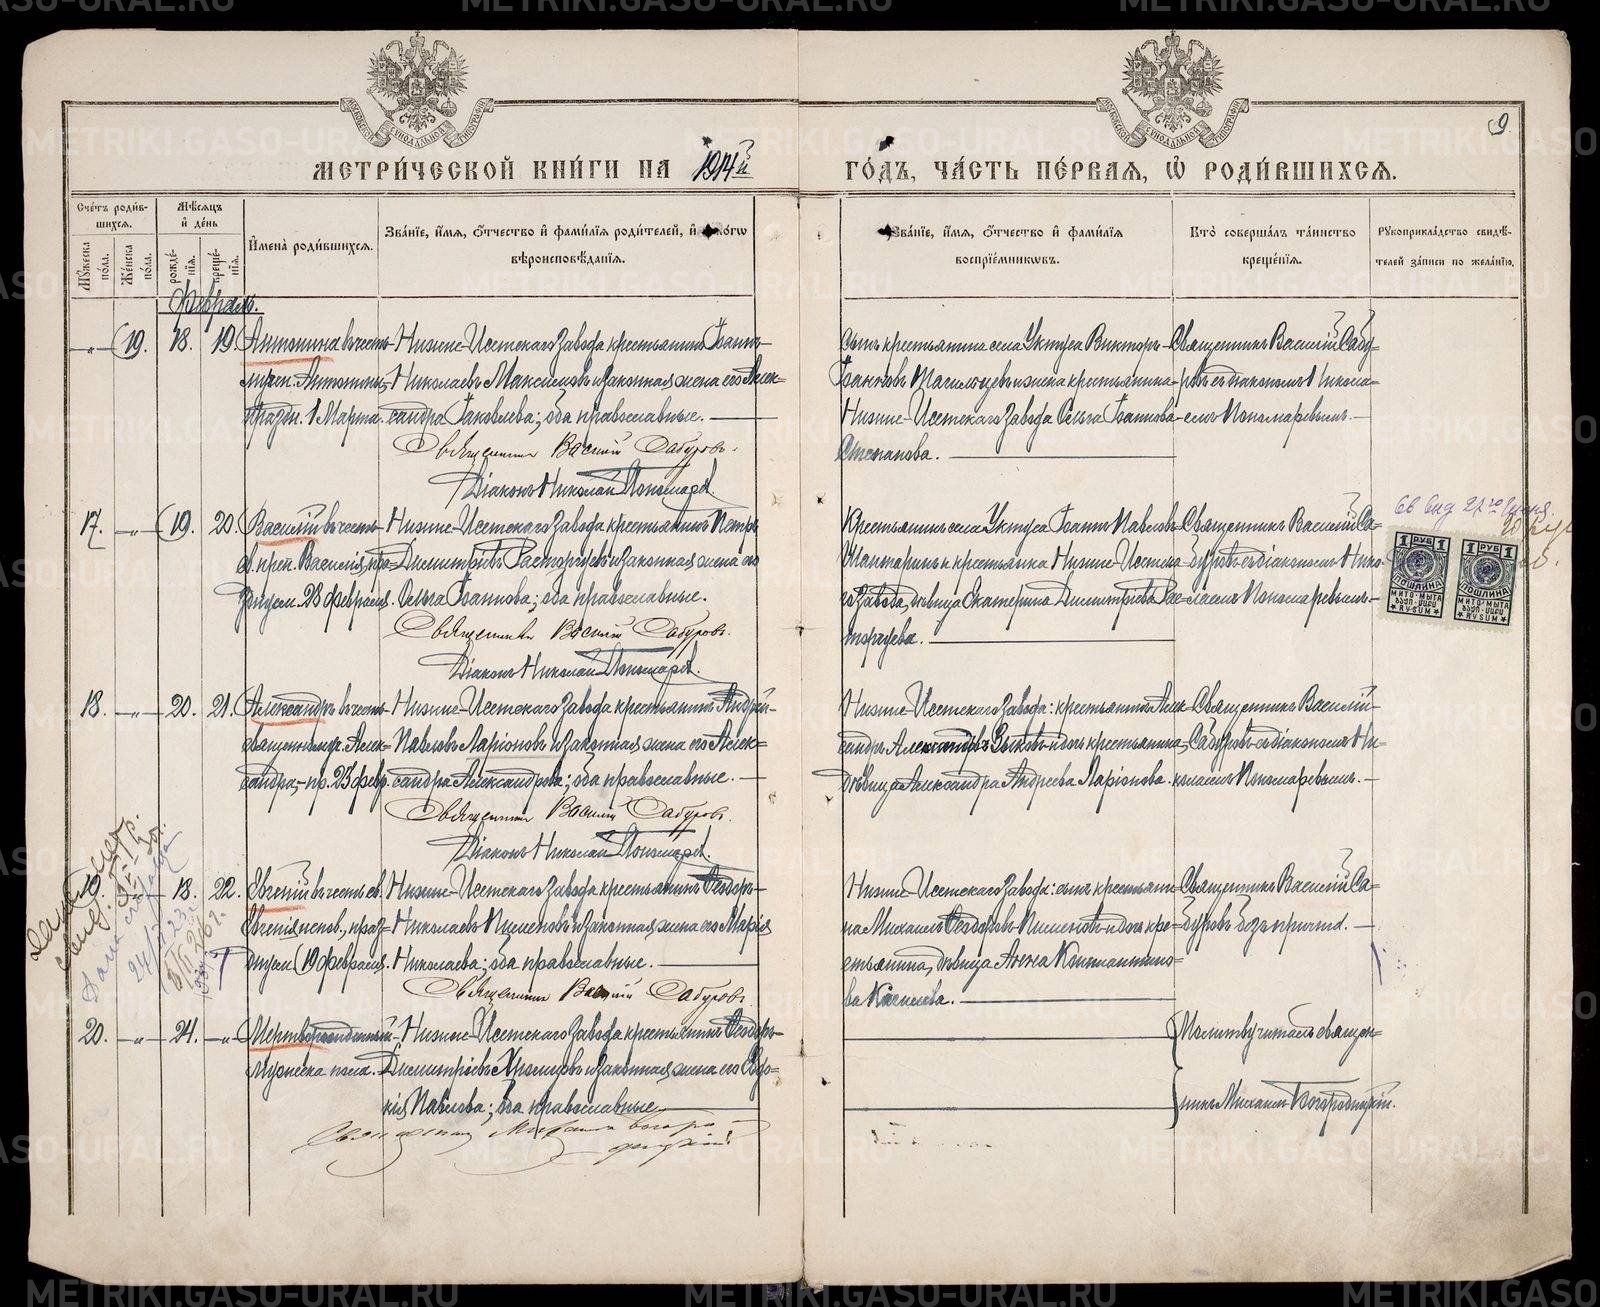 МЕТРИ́ЧЕСКОЙ КНИ́ГИ НА 1914й ГО́ДЪ, ЧА́СТЬ ПЕ́РВАЯ, Ѡ РОДИ́ВШИХСЯ.
9
Сче́тъ роди́вшихся.
Му́жеска по́ла.
Же́нска по́ла.
Мѣ́сяцъ и де́нь
рожде́нїя.
креще́нїя.
Имена̀ роди́вшихся.
Зва́нїе, и́мя, о́тчество и фами́лїя роди́телей, и како́гѡ
вѣроисповѣ́данїя.
Зва́нїе, и́мя, о́тчество и фами́лїя
воспрїе́мникѡвъ.
Кто̀ соверша́лъ та́инство
креще́нїя.
Рꙋкоприкла́дство свидѣ́телей за́писи по жела́нїю.
Февраль.
-"- 19. 18. 19
Антонина въ честь
мучен. Антонины,
праздн. 1 Марта.
Нижне-Исетскаго Завода крестьянинъ Іоаннъ
Николаевъ Максимовъ и законная жена его Алек=
сандра Іаковлева; оба православные.
Священникъ Василій Сабуровъ.
Діаконъ Николай Пономарев.
Сынъ крестьянина села Уктуса Викторъ
Іоанновъ и жена крестьянина
Нижне-Исетскаго Завода Ольга Іоаннова
Степанова.
Священникъ Василій Сабу=
ровъ съ діакономъ Никола=
емъ Пономаревымъ.
17. -"- 19. 20.
Василій въ честь
св. преп. Василія, пра=
зднуем. 28 февраля.
Нижне-Исетскаго Завода крестьянинъ Петръ
Димитріевъ Расторгуевъ и законная жена его
Ольга Іоаннова; оба православные.
Священникъ Василій Сабуровъ.
Діаконъ Николай Пономарев.
Крестьянинъ села Уктуса Іоаннъ Павловъ
и крестьянка Нижне-Исетска=
го Завода, дѣвица Екатерина Димитріева Рас=
торгуева.
Священникъ Василій Са=
буровъ съ діакономъ Нико=
лаемъ Пономаревымъ.
1 РУБ 1
ПОШЛИНА
МИТО·МЫТА
RYSUM
1 РУБ 1
ПОШЛИНА
МИТО·МЫТА
RYSUM
18. -"- 20. 21.
Александръ въ честь
священномуч. Алек=
сандра, пр. 25 февр.
Нижне-Исетскаго Завода крестьянинъ Андрей
Павловъ Ларіоновъ и законная жена его Алек=
сандра Александрова; оба православные.
Священникъ Василій Сабуровъ.
Діаконъ Николай Пономарев.
Нижне-Исетскаго Завода: крестьянинъ Алек
сандръ Александровъ Зыковъ и дочь крестьянина,
дѣвица Александра Андреева Ларіонова.
Священникъ Василій
Сабуровъ съ діакономъ Ни=
колаемъ Пономаревымъ.
19. 18. 22.
Евгеній въ честь св.
Евгенія испов., праз=
днуем. 19 февраля.
Нижне-Исетскаго Завода крестьянинъ Ѳеодоръ
Николаевъ Пименовъ и законная жена его Марія
Николаева; оба православные.
Священникъ Василій Сабуровъ
Нижне-Исетскаго Завода: сынъ крестьяни=
на Михаилъ Ѳеодоровъ Пименовъ и дочь кре=
стьянина, дѣвица Анна Константино=
ва
Священникъ Василій Са=
буровъ безъ причта.
20. -"- 24. -"-
Мертворожденный
мужеска пола.
Нижне-Исетскаго Завода крестьянинъ Ѳеодоръ
Димитріевъ и законная жена его Евдо=
кія Павлова; оба православные.
Священникъ Михаилъ Богородицкій.
Молитву читалъ священ=
никъ Михаилъ Богородицкій.
METRIKI.GASO-URAL.RU